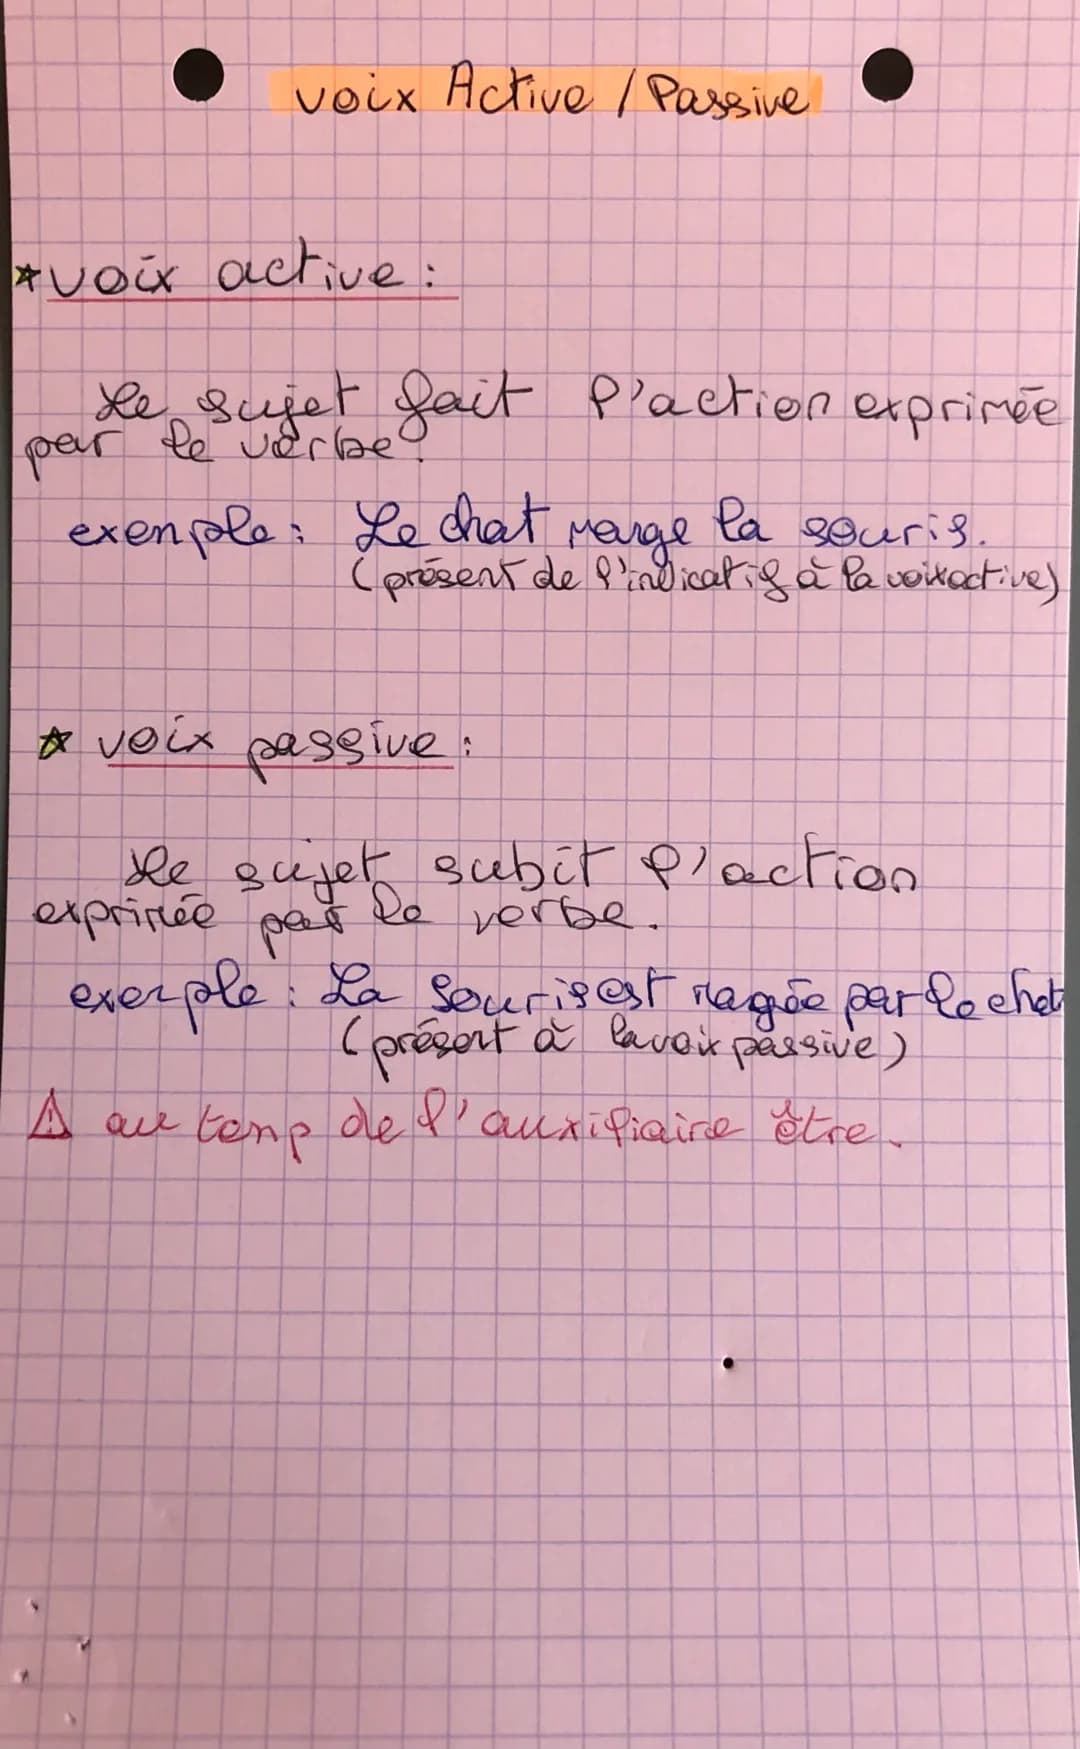 voix Active / Passive
voix active :
Le sujet fait l'action exprimée
par le verbe.
exemple : Le chat mange la souris.
(présent de l'indicatif à la voix active)
voix passive :
Le sujet subit l'action
exprimée par le verbe.
exemple : La souris est mangée par le chat
(présent à la voix passive)
⚠ au temp de l'auxiliaire être.